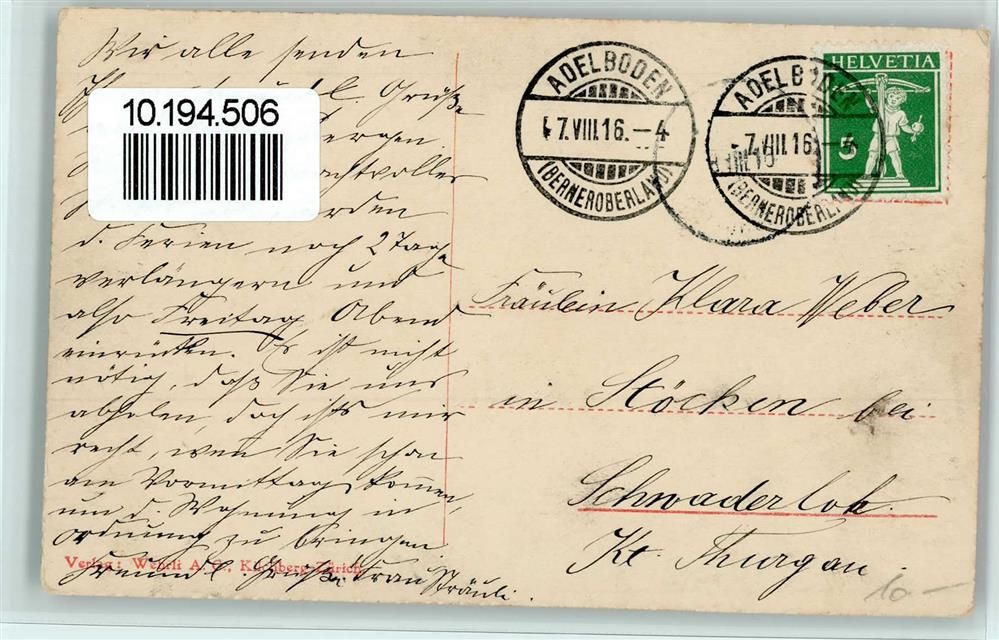 Wir alle senden
Grüße
10.194.506
Bergen
d. Ferien noch 2 Tage
verlängern und
also Freitag Abend
einrücken. Es ist nicht
nötig, daß Sie uns
abholen, doch ists mir
recht, wenn Sie schon
am Vormittag kommen,
um d. Wohnung in
Ordnung zu bringen.
Freundl. Grüße Frau Sträuli.
Verlag: Wehrli A. G., Kilchberg-Zürich
ADELBODEN
7.VIII.16.–4
(BERNEROBERLAND)
ADELBODEN
7.VIII.16.–4
(BERNEROBERLAND)
HELVETIA
5
Fräulein Klara Weber
in Stöcken bei
Schwaderloh.
Kt. Thurgau.
10.-